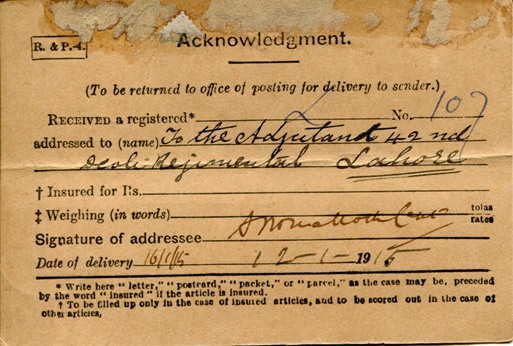 R. & P-4.
Acknowledgment.
(To be returned to office of posting for delivery to sender.)
RECEIVED a registered* L No. 107
addressed to (name) To the Adjutant 42nd
Deoli Regimental Lahore
† Insured for Rs.
‡ Weighing (in words) tolas
rates
Signature of addressee
Date of delivery 16/1/15 12-1-1915
* Write here "letter," "postcard," "packet," or "parcel," as the case may be, preceded
by the word "insured" if the article is insured.
† To be filled up only in the case of insured articles, and to be scored out in the case of
other articles.